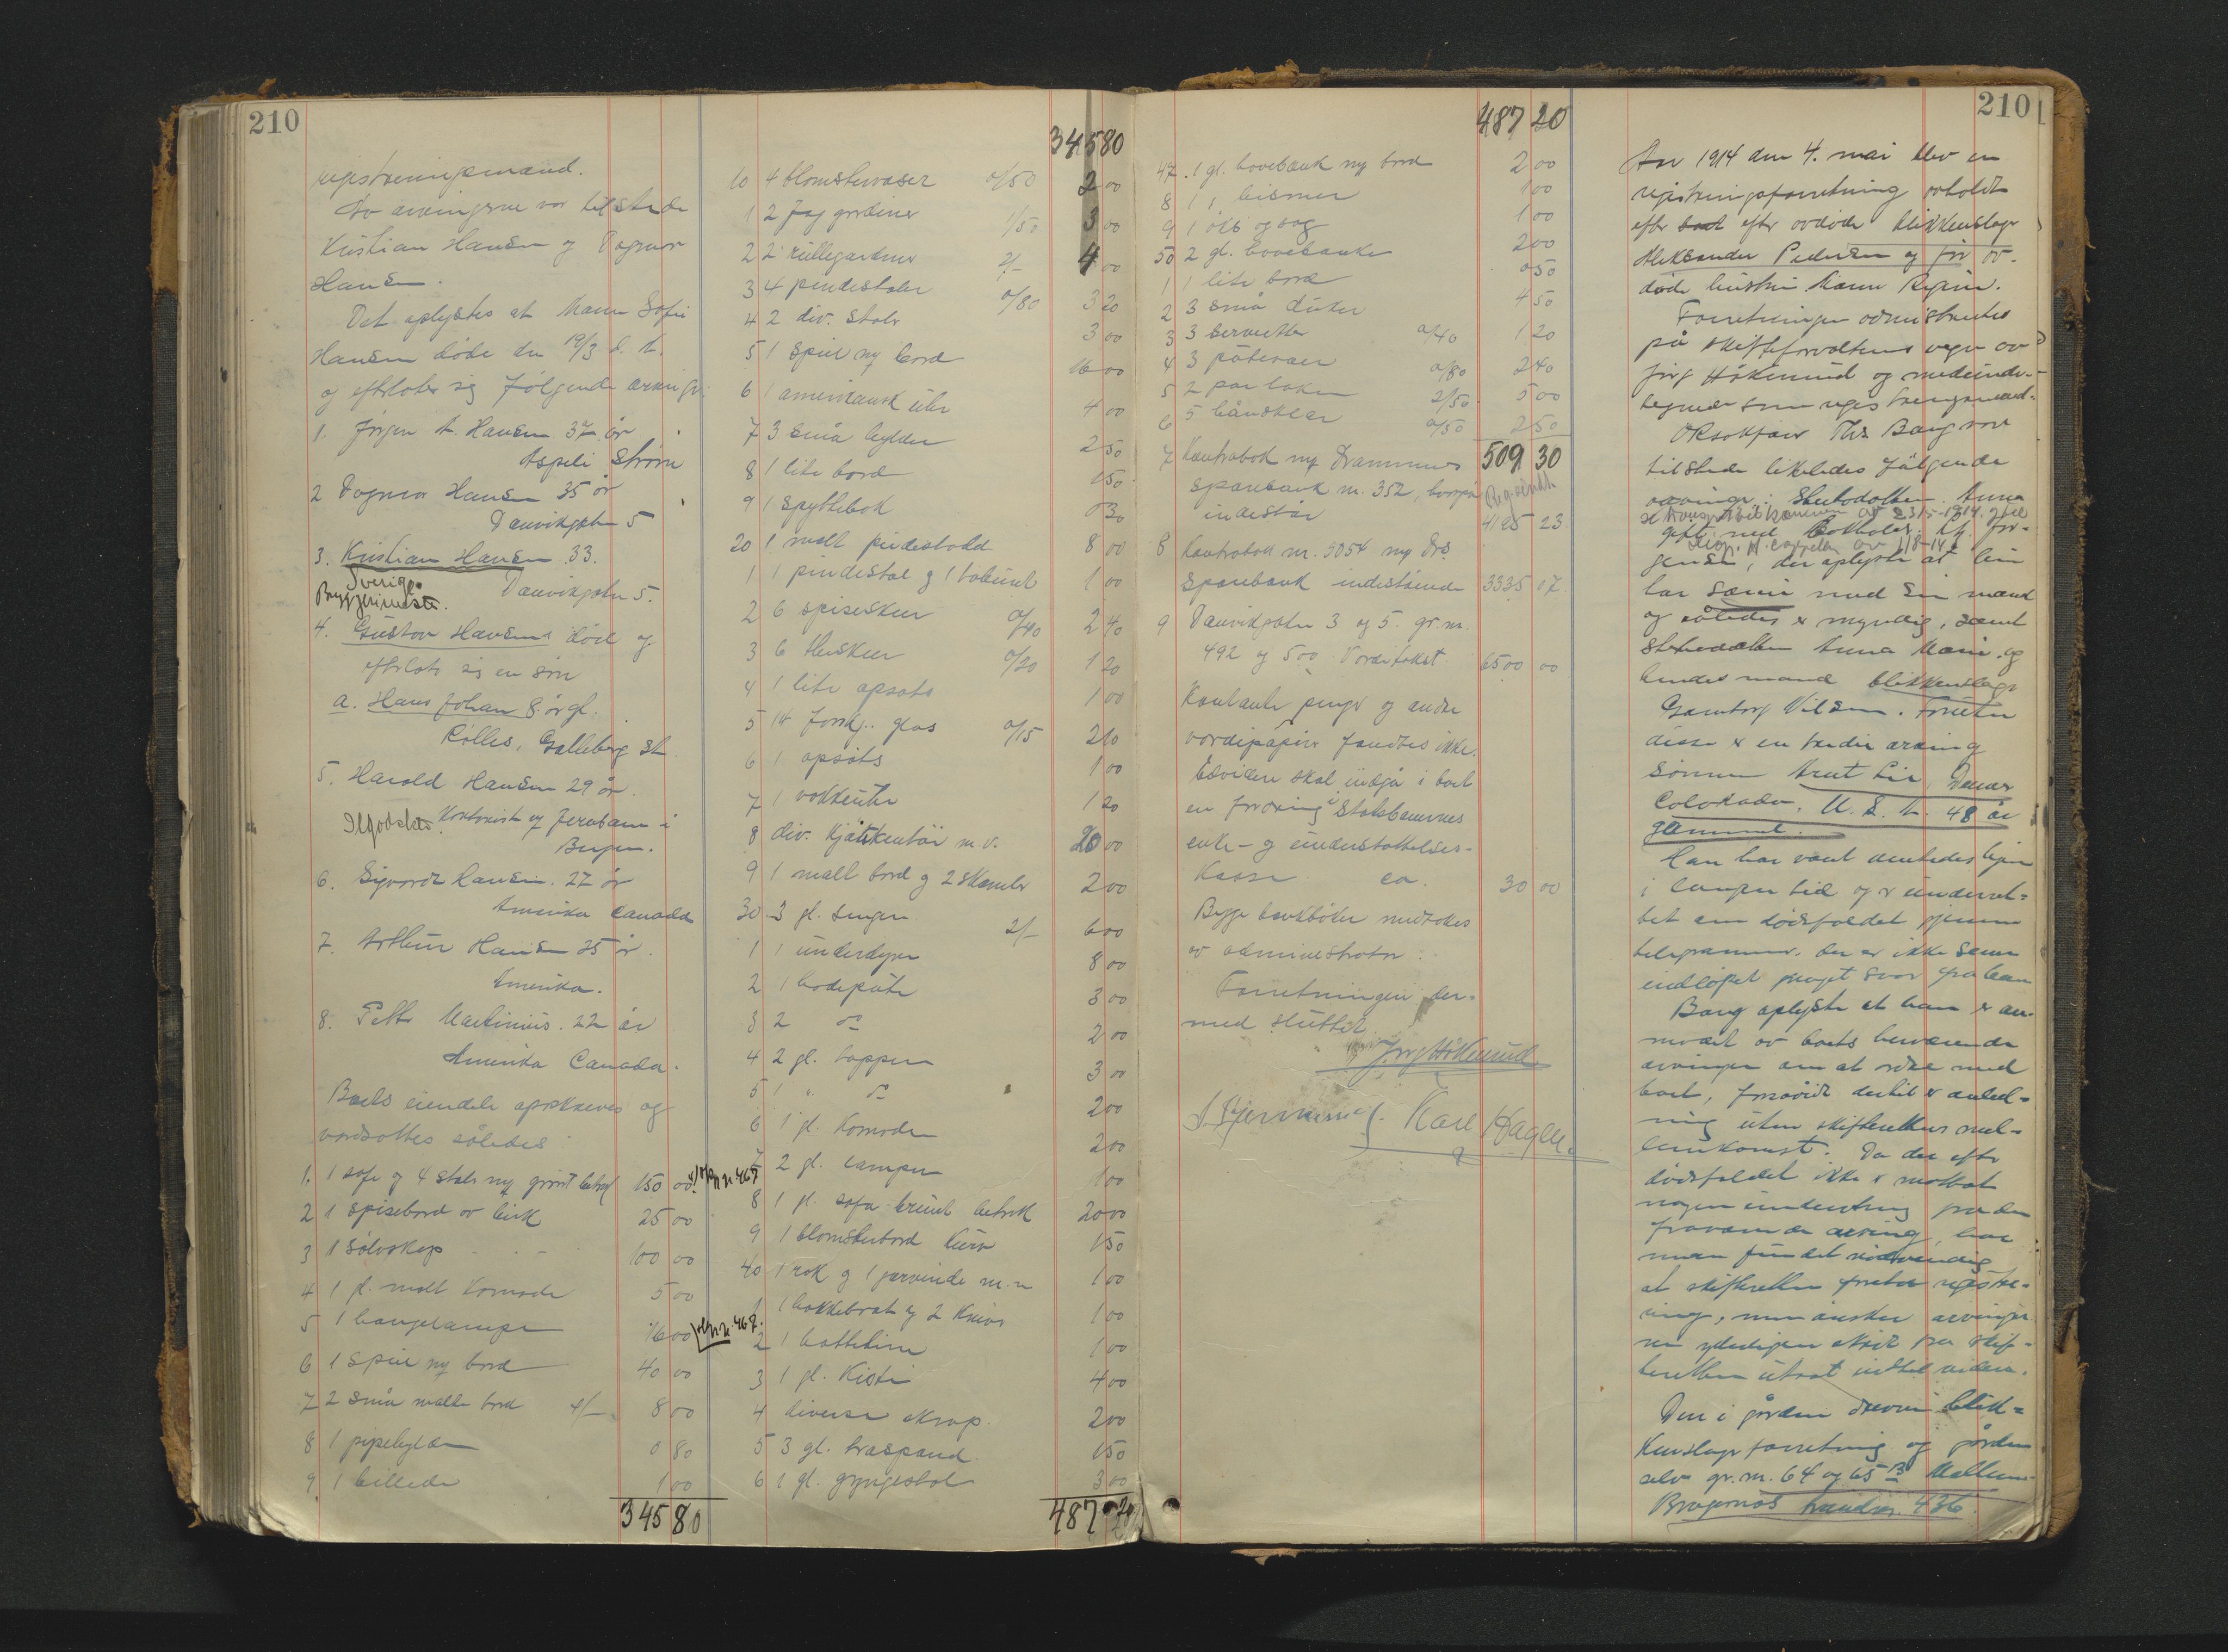 210
registreringsmand.
Av arvingerne var tilstede
Kristian Hansen og Dagmar
Hansen.
Det oplystes at Maren Sofie
Hansen døde den 19/3 d. å.
og efterlot sig følgende arvinger:
1. Jørgen A. Hansen 37 år
Aspeli Strøm
2 Dagmar Hansen 35 år
Danvikgaten 5
3. Kristian Hansen 33.
Sverige. Danvikgaten 5.
Bryggerimester.
4. Gustav Hansen død og
efterlot sig en søn
a. Hans Johan 8 år gl.
Rolles, Galleberg St.
5. Harald Hansen 29 år.
Ilgodseksp. Kontorist og Jernbanen i
Bergen.
6. Sigvard Hansen. 27 år
Amerika Canada
7. Arthur Hansen 25 år.
Amerika.
8. Petter Martinius. 22 år
Amerika Canada.
Boets eiendele opskreves og
værdsattes således:
1. 1 sofa og 4 stoler m/ grønt betræk 150 00
2 1 spisebord av birk 25 00
3 1 Sølvskap 100 00
4 1 gl. malt komode 5 00
5 1 hængelampe 16 00
6 1 speil m/ bord 40 00
7 2 små malte bord 4/- 8 00
8 1 pipehylde 0 80
9 1 billede 1 00
345 80
345 80
10 4 blomstervaser 0/50 2 00
1 2 fag gardiner 1/50 3 00
2 2 rullegardiner 2/- 4 00
3 4 pindestoler 0/80 3 20
4 2 div. stoler 3 00
5 1 speil m/ bord 16 00
6 1 amerikansk uhr 4 00
7 3 små hylder 2 50
8 1 lite bord 1 50
9 1 spyttebak 0 30
20 1 malt pindestold 8 00
1 1 pindestol og 1 taburet 1 00
2 6 spiseskeer 0/40 2 40
3 6 theskeer 0/20 1 20
4 1 lite opsats 1 00
5 14 forskj. glas 0/15 2 10
6 1 opsats 1 00
7 1 vækkeuhr 1 20
8 div. kjøkkentøi m.v. 20 00
9 1 malt bord og 2 skamler 2 00
30 3 gl. senger 2/- 6 00
1 1 underdyne 8 00
2 1 hodepute 3 00
3 2 do 2 00
4 2 gl. tepper 3 00
5 1 " do 2 00
6 1 gl. komode 2 00
7 2 gl. lamper 1 00
8 1 gl. sofa brunt betræk 20 00
9 1 blomsterbord kurv 1 50
40 1 rok og 1 garvinde m.m. 1 00
1 1 hakkebræt og 2 kniver 1 00
2 1 bøttetine 1 00
3 1 gl. kiste 4 00
4 diverse skrap 2 00
5 3 gl. træspand 1 50
6 1 gl. gyngestol 3 00
487 20
487 20
47. 1 gl. høvebænk m/ bord 2 00
8 1 bismer 1 00
9 1 øks og sag 1 00
50 2 gl. høvebænke 2 00
1 1 lite bord 0 50
2 3 små duker 4 50
3 3 servietter 0/40 1 20
4 3 putevaer 0/80 2 40
5 2 par laken 2/50 5 00
6 5 håndklær 0/50 2 50
509 30
7 Kontrabok m/ Drammens
Sparebank nr. 352, hvorpå
indestår 4195 23
8 Kontrabok nr. 5054 m/ Drs
Sparebank indestående 3335 07
9 Danvikgaten 3 og 5. gr.nr.
492 og 500. Værdi takst 6500 00
Kontante penge og andre
værdipapirer fandtes ikke.
Desviden skal indgå i boet
en fordring i Statsbanernes
enke- og understøttelses-
kasse ca. 30 00
Begge bankbøker medtokes
av administrator.
Forretningen der-
med sluttet.
Jørg Håkerud
Karl Hagen
210
Aar 1914 den 4. mai blev en
registreringsforretning avholdt
efter avdøde blikkenslager
Aleksander Pedersen og før av-
døde hustru Maren Regine.
Forretningen administrertes
på skifteforvalterens vegne av
Jørg Håkerud og medunder-
tegnede som registreringsmænd.
O.R.sakfører Ths. Bang var
tilstede likeledes følgende
arvinger: Steddatteren Anna
gift med
gensen, der oplyste at hun
har særeie med sin mand
og således er myndig, samt
steddatteren Anna Marie og
hendes mand blikkenslager
Nilsen. Foruten
disse er en tredie arving
sønnen Arnt Lie, Denver
Colorado, U.S.A. 48 år
gammel.
Han har været derborte
i lang tid og er underret-
tet om dødsfaldet gjennem
telegrammer. Der er ikke senere
indløpet noget svar fra ham
Bang oplyste at han er an-
modet av boets herværende
arvinger om at ordne med
boet, forsåvidt dertil er anled-
ning uten skifterettens mel-
lemkomst. Da der efter
dødsfaldet ikke er mottat
nogen underretning fra den
fraværende arving, har
man fundet nødvendig
at skifteretten foretar registre-
ring, men ønsker arvinger-
ne yderligere skridt fra skif-
teretten utsat indtil videre.
Den i gården drevne blik-
kenslagerforretning og gården
selv gr.nr. 64 og 65 B Mellem
Bragernes brandnr. 436.